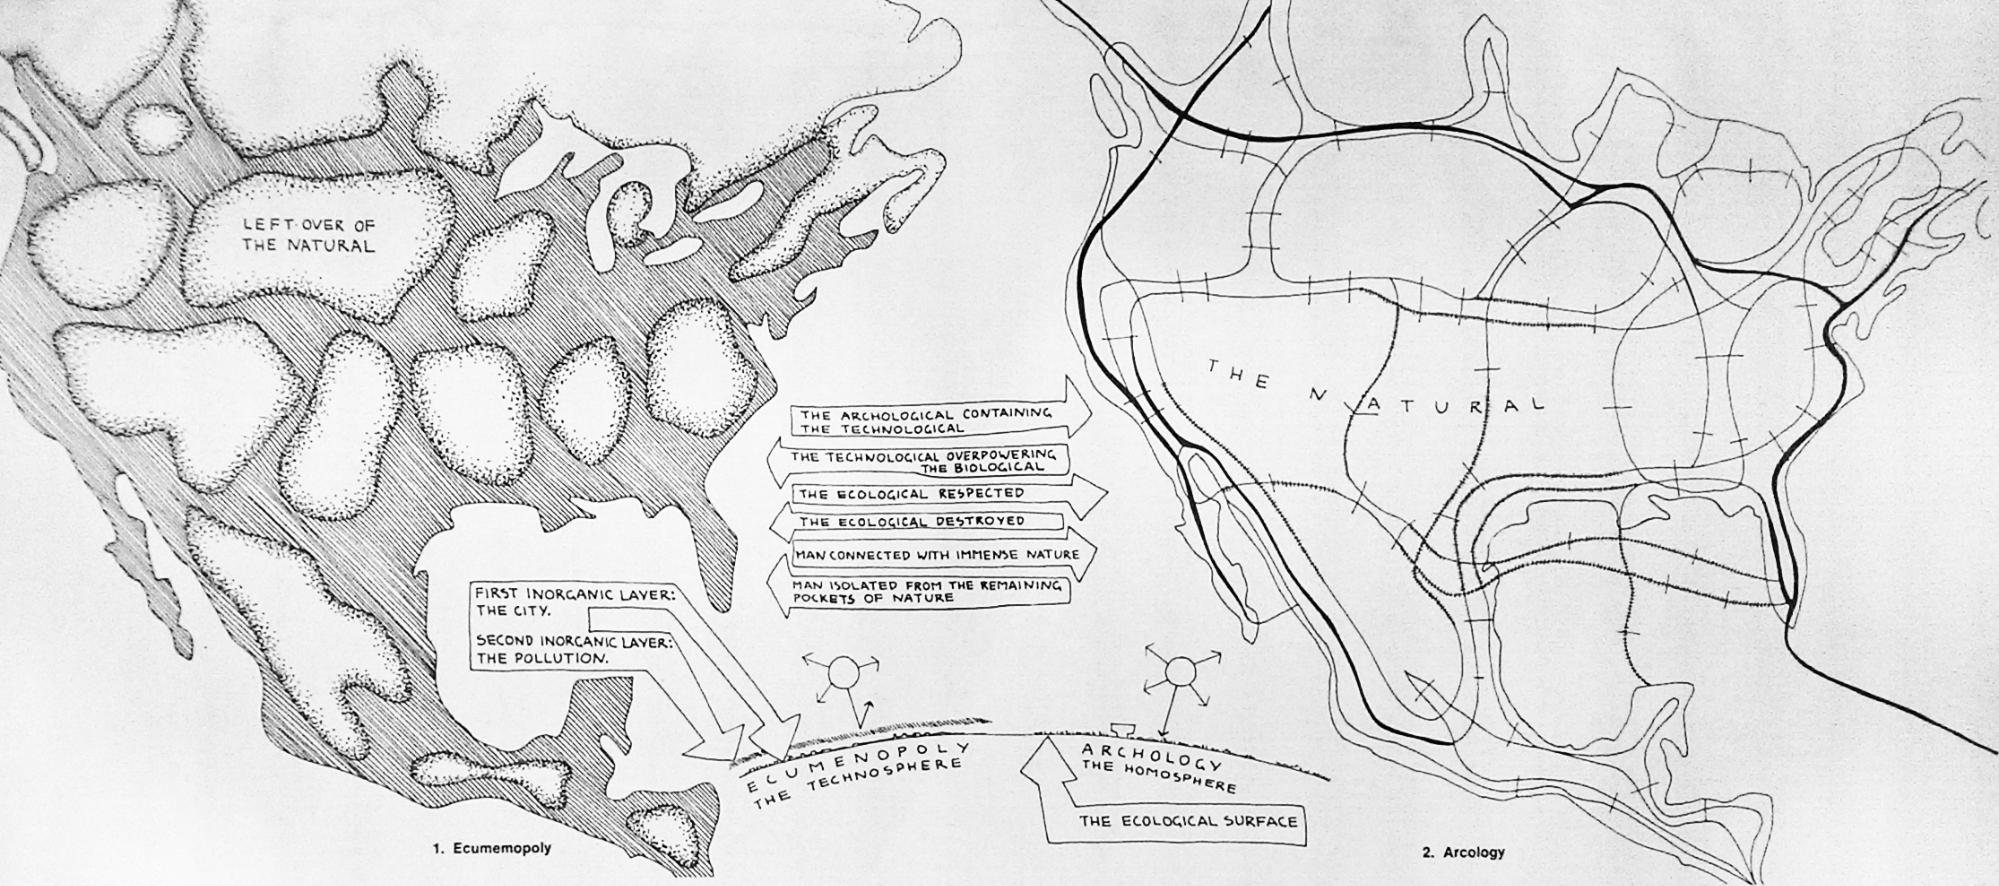 LEFT OVER OF
THE NATURAL
THE NATURAL
THE ARCHOLOGICAL CONTAINING
THE TECHNOLOGICAL
THE TECHNOLOGICAL OVERPOWERING
THE BIOLOGICAL
THE ECOLOGICAL RESPECTED
THE ECOLOGICAL DESTROYED
MAN CONNECTED WITH IMMENSE NATURE
MAN ISOLATED FROM THE REMAINING
POCKETS OF NATURE
FIRST INORGANIC LAYER:
THE CITY.
SECOND INORGANIC LAYER:
THE POLLUTION.
ECUMENOPOLY
THE TECHNOSPHERE
ARCHOLOGY
THE HOMOSPHERE
THE ECOLOGICAL SURFACE
1. Ecumemopoly
2. Arcology